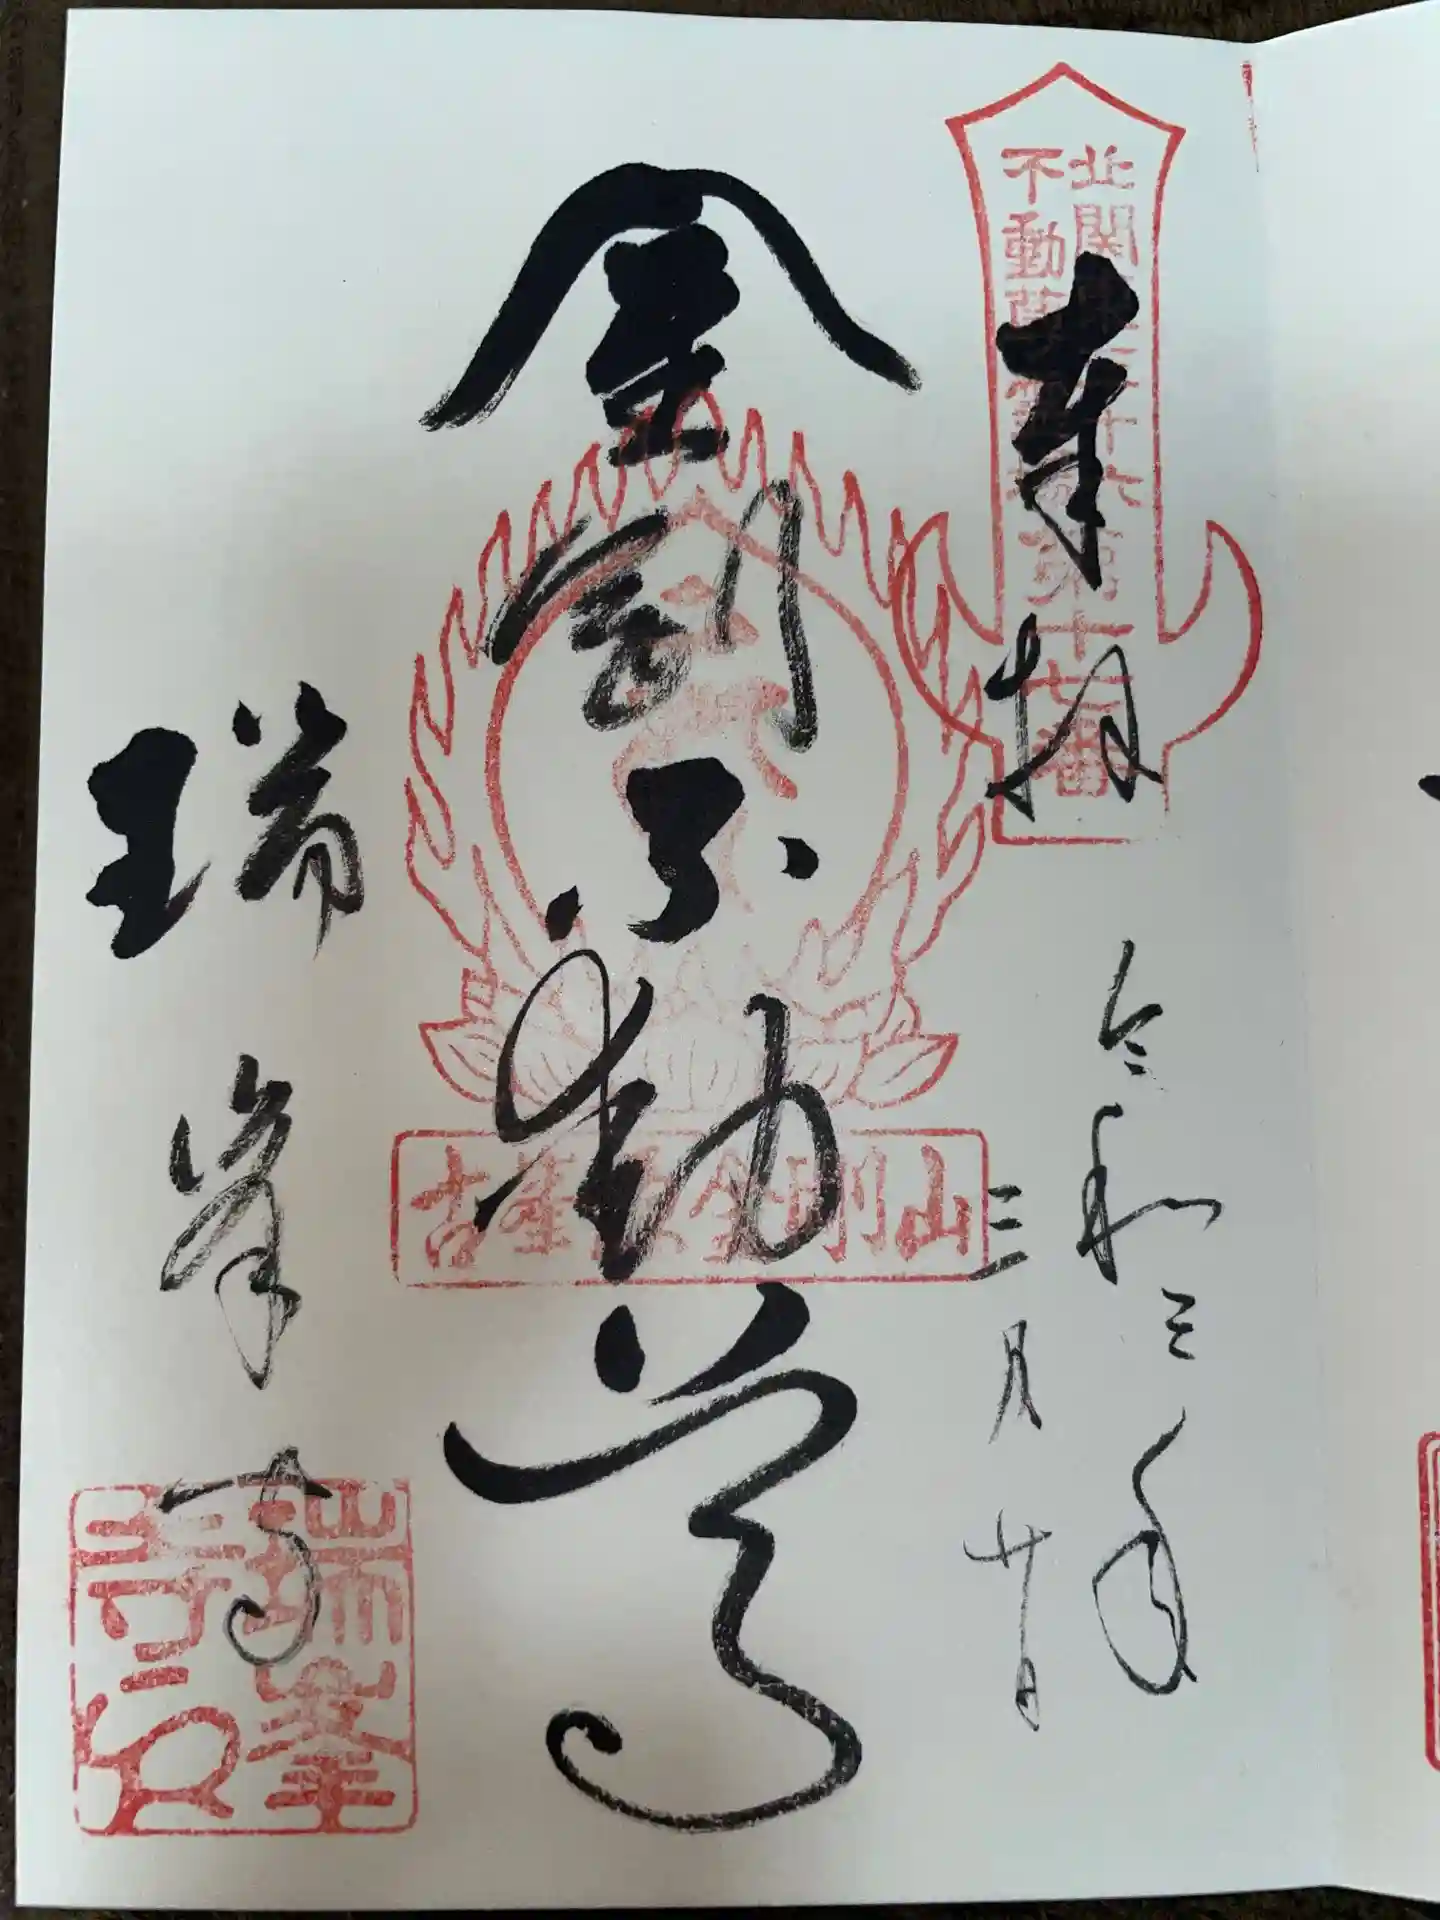 奉拝
令和三年
三月廿日
北関東三十六
不動尊霊場
第十七番
金剛不動尊
山剛金
古峯
瑞峯寺
瑞峯
寺印